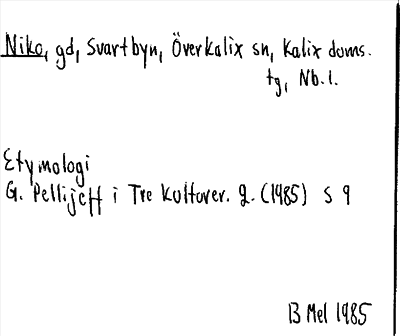 Niko, gd, Svartbyn, Överkalix sn, Kalix doms.
tg, Nb.l.
Etymologi
G. Pellijeff i Tre Kulturer. 2. (1985) s 9
B Mel 1985